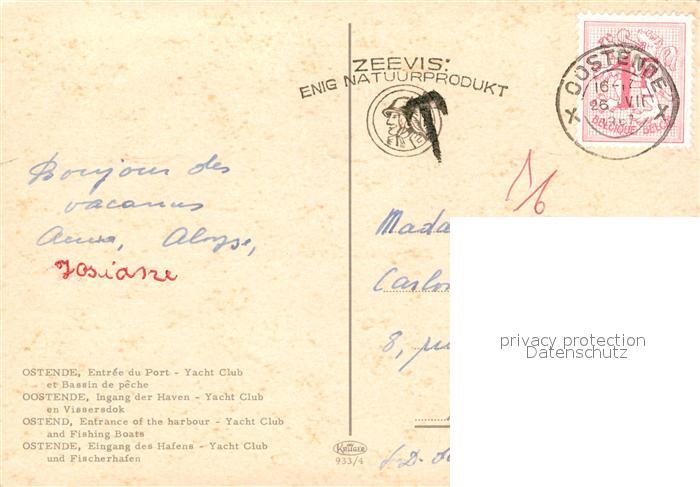 ZEEVIS:
ENIG NATUURPRODUKT
OOSTENDE
16-17
26 VII
BELGIQUE-BELGIE
1F
T
Bonjour des
vacances
Anna, Aloyse,
Josiane
1/6
Mada
Carlos
8, rue
OSTENDE, Entrée du Port - Yacht Club
et Bassin de pêche
OOSTENDE, Ingang der Haven - Yacht Club
en Vissersdok
OSTEND, Entrance of the harbour - Yacht Club
and Fishing Boats
OSTENDE, Eingang des Hafens - Yacht Club
und Fischerhafen
KRÜGER
933/4
privacy protection
Datenschutz